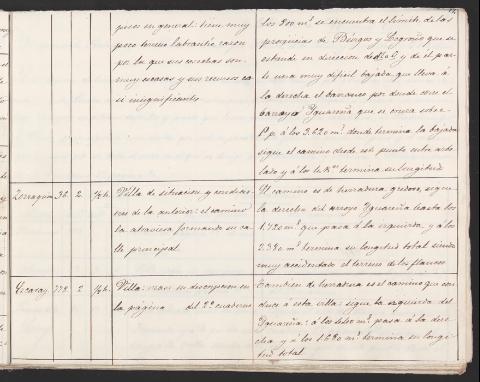 pesos en general: tiene muy
poco terreno labrantío razon
por la que sus cosechas son
muy escasas y sus recursos ca
si insignificantes.
los 300 m.s se encuentra el límite de las
provincias de Búrgos y Logroño que se
estiende en direccion de á O, y de él par
te una muy dificil bajada que lleva á
la derecha el barranco por donde corre el
arroyo Yguareña que se cruza sobre
P.p. á los 3.620 m.s donde termina la bajada
sigue el camino desde este punto entre arbo
lado y á los termina su longitud
Zorraquin 36. 2. ½ h.
Villa de situacion y condicio
nes de la anterior: el camino
la atraviesa formando su ca
lle principal.
El camino es de herradura gredoso, sigue
la derecha del arroyo Yguareña hasta los
1.720 m.s que pasa á la izquierda, y á los
2.380 m.s termina su longitud total siendo
muy accidentado el terreno de los flancos
Ezcaray. 778. 2 ½ h.
Villa: vease su descripcion en
la página del 2.o cuaderno
Tambien de herradura es el camino que con
duce á esta villa: sigue la izquierda del
Yguareña: á los m.s pasa á la dere
cha y á los 1.680 m.s termina su longi
tud total